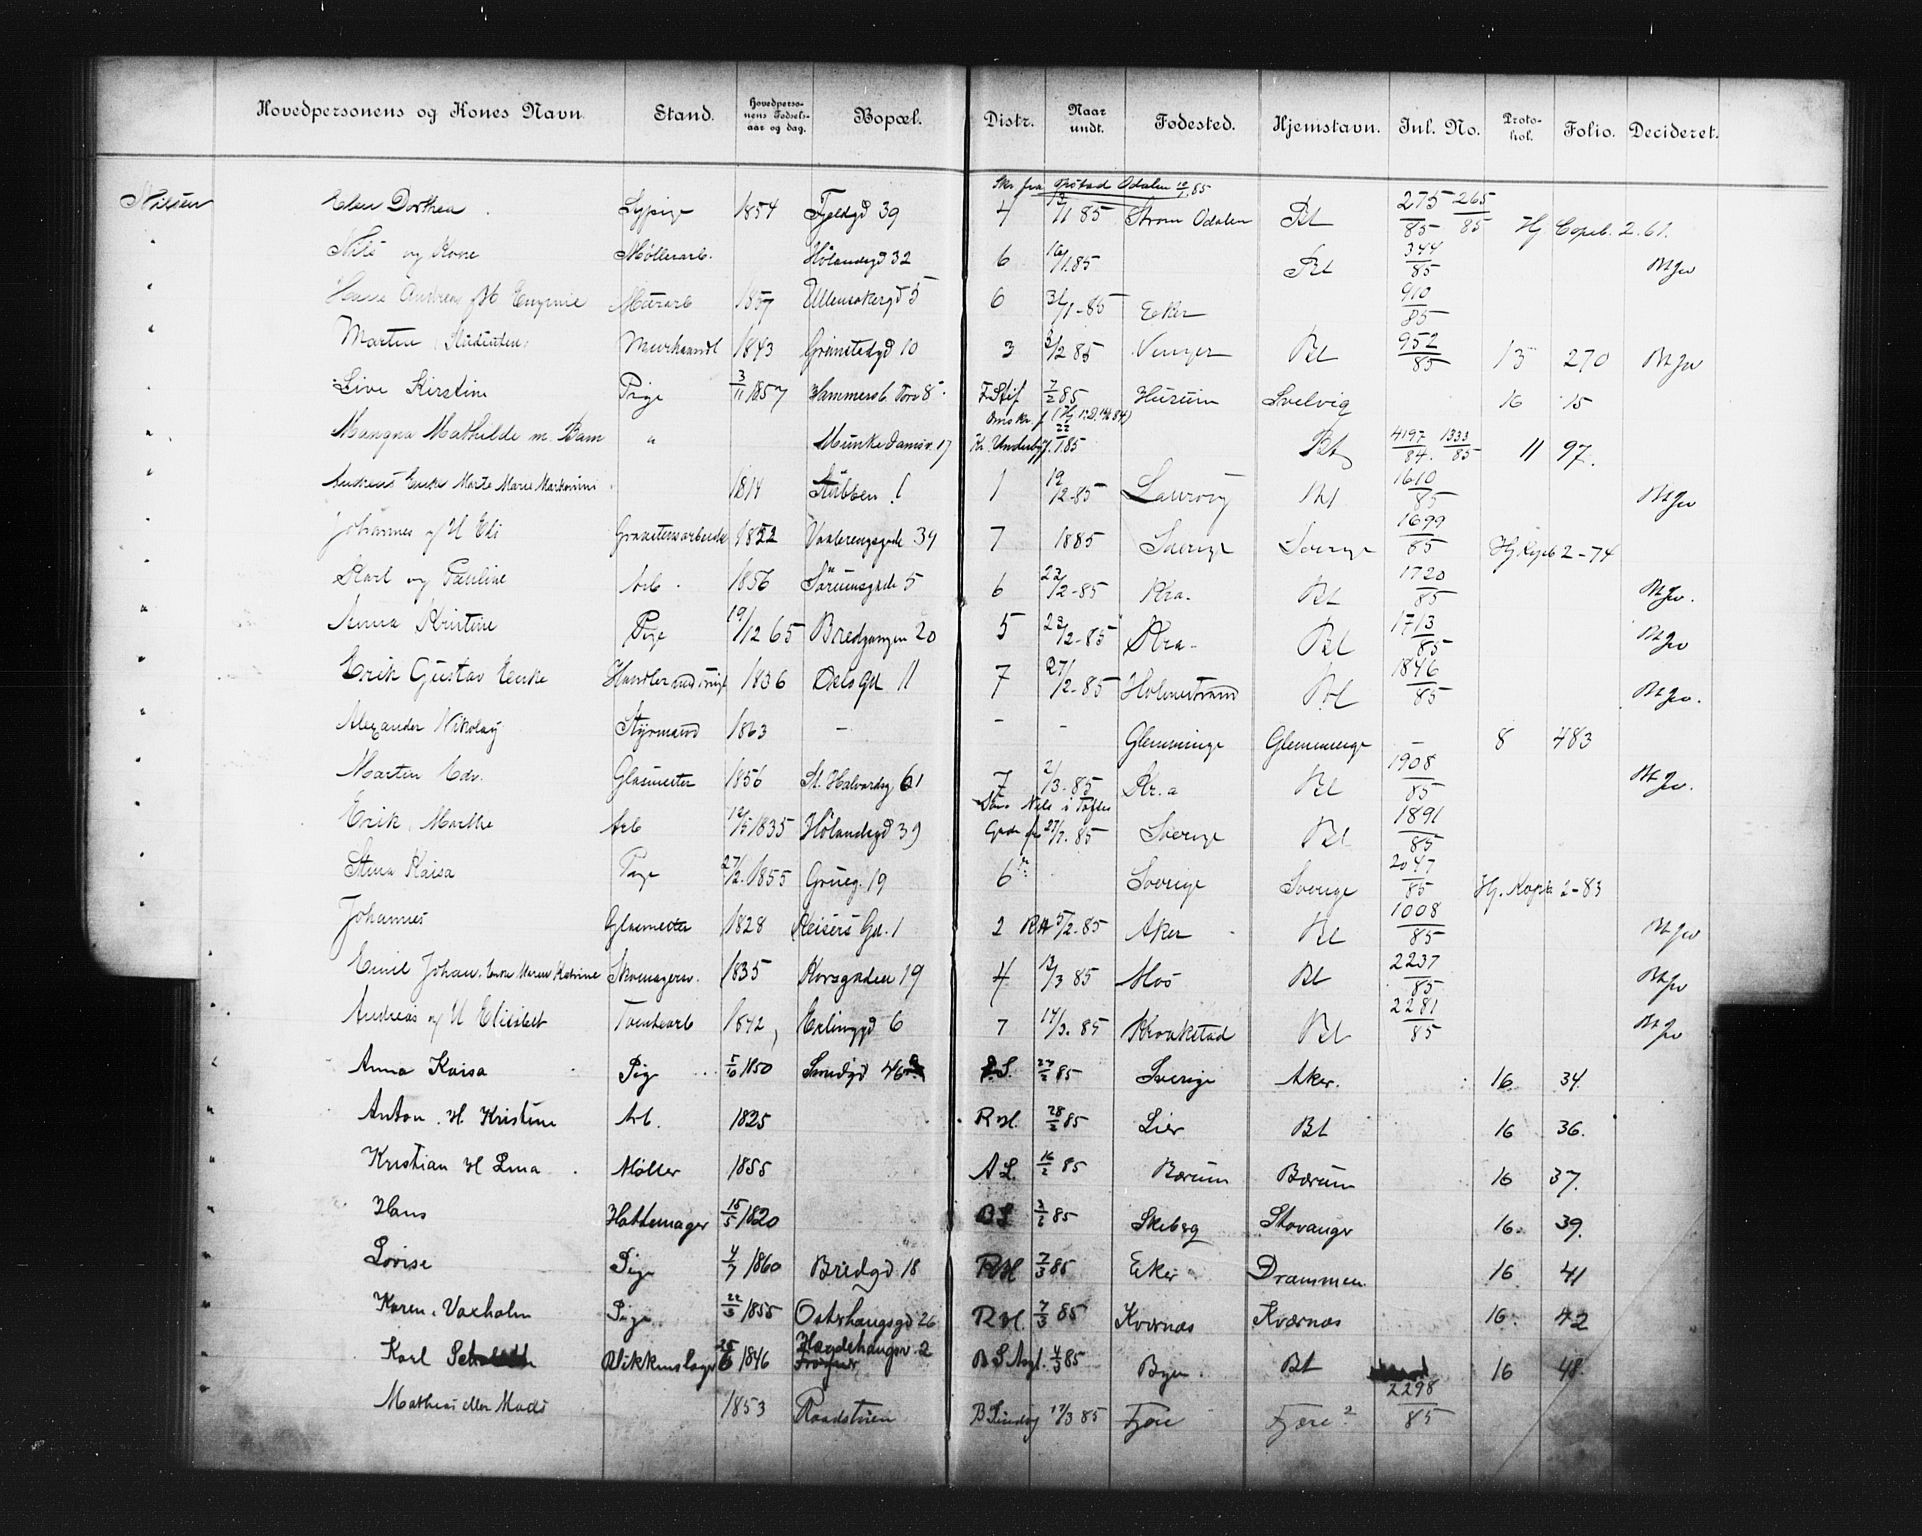 Hovedpersonens og Kones Navn. Stand. Hovedperso-nens Fødsels-aar og dag. Bopæl. Distr. Naar undt. Fødested. Hjemstavn. Inl. No. Proto-kol. Folio. Decideret.
Skr fra Odalen 85
Nilsen Elen Dorthea 1854 Fjeldgd 39 4 11 85 Strøm Odalen Bt 275/85 265/85 Hj. Copeb. 2. 61.
" Nils og Kone Møllerarb. Hølandsgd 32 6 16/1.85 Bt 344/85
" Andreas Murarb 1857 Ullensakergd 5 6 31/1-85 Eker 910/85
" Marten 1843 Grønstedgd 10 3 3/2 85 Bt 952/85 13 270
Live Kirstine Pige 3/11 1857 Hammersb. Torv 8 7/2 85 Hurum Svelvig 16 15
" Mangna Mathilde m. Barn " Munkedamsv. 17 85 Bt 4197/84 1333/85 11 97.
" Andreas Enke Marte Marie 1814 Stubben 1 1 19/2-85 Laurvig Bt 1610/85
" Johannes og H Eli 1822 Vaalerengsgade 39 7 1885 Sverige Sverige 1699/85 2-74
" Karl og Pauline Arb. 1856 Sørumsgade 5 6 23/2-85 Kra. Bt 1720/85
" Anna Kristine Pige 19/12 65 Bredgangen 20 5 23/2-85 Kra. Bt 1713/85
" Erik Gustav Enke 1836 Oslogd 11 7 27/2-85 Holmestrand Bt 1846/85
" Alexander Nikolay Styrmand 1863 - - - Glemminge Glemminge - 8 483
" Marten Edv. Glasmester 1856 St. Halvardsg 61 7 2/3-85 Kr.a Bt 1908/85
" Erik, Marthe Arb 1835 Hølandsgd 39 27/1.85 Sverige Bt 1891/85
" Stina Kaisa Pige 27/2.1855 Grueg. 19 6 Sverige Sverige 2047/85 Hj. Kopib 2-83
" Johannes Glasmester 1828 Keisers Gd. 1 2 5/2.85 Aker Bt 1008/85
" Emil Johan, Enke Maren Katrine Skomagersv. 1835 Korsgaden 19 4 12/3 85 Mos Bt 2237/85
" Andreas og H Elisabet Tomtearb 1842 Erlinggd 6 7 14/3.85 Kraakstad Bt 2281/85
Anna Kaisa Pige 5/6 1850 Smedgd 46 27/2 85 Sverige Aker. 16 34.
" Anton. H Kristine Arb. 1825 R.H. 28/2 85 Lier Bt 16 36.
" Kristian H Lina Møller 1855 A L. 16/2 85 Bærum Bærum 16 37.
" Hans Hattemager 15/5 1820 BS 3/2 85 Skiberg Stavanger 16. 39.
" Lovise Pige 4/7 1860 Bredgd 18 R.H 7/3 85 Eker Drammen 16 41
" Karen. Vaxholm Pige 22/3 1855 Osterhausgd 26 R.H. 7/3 85 Kværnes Kværnæs 16. 42
" Karl Blikkenslager 25/6 1846 Hægdehaugsv. 2 B S Asyl. 4/3 85 Byen. Bt 16 48.
" Mathias eller Mads 1853 Raadstuen 17/3 85 Fjære Fjære? 2298/85